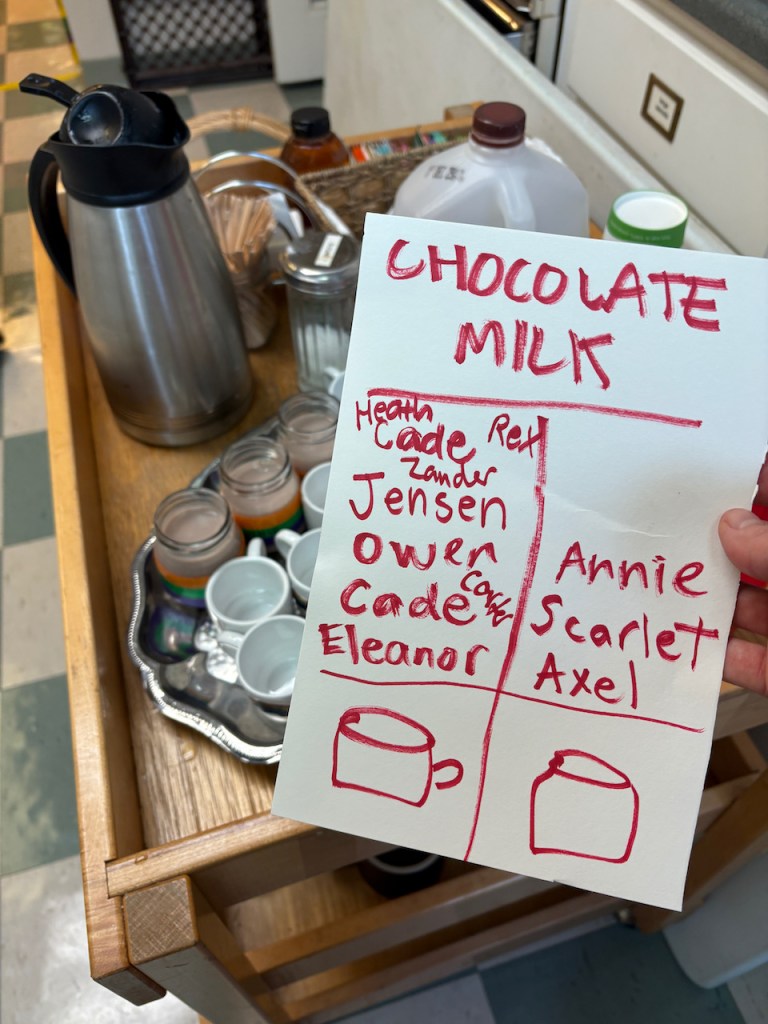 CHOCOLATE
MILK
Heath
Cade Rex
Zander
Jensen
Owen
Cade Carter
Eleanor
Annie
Scarlet
Axel